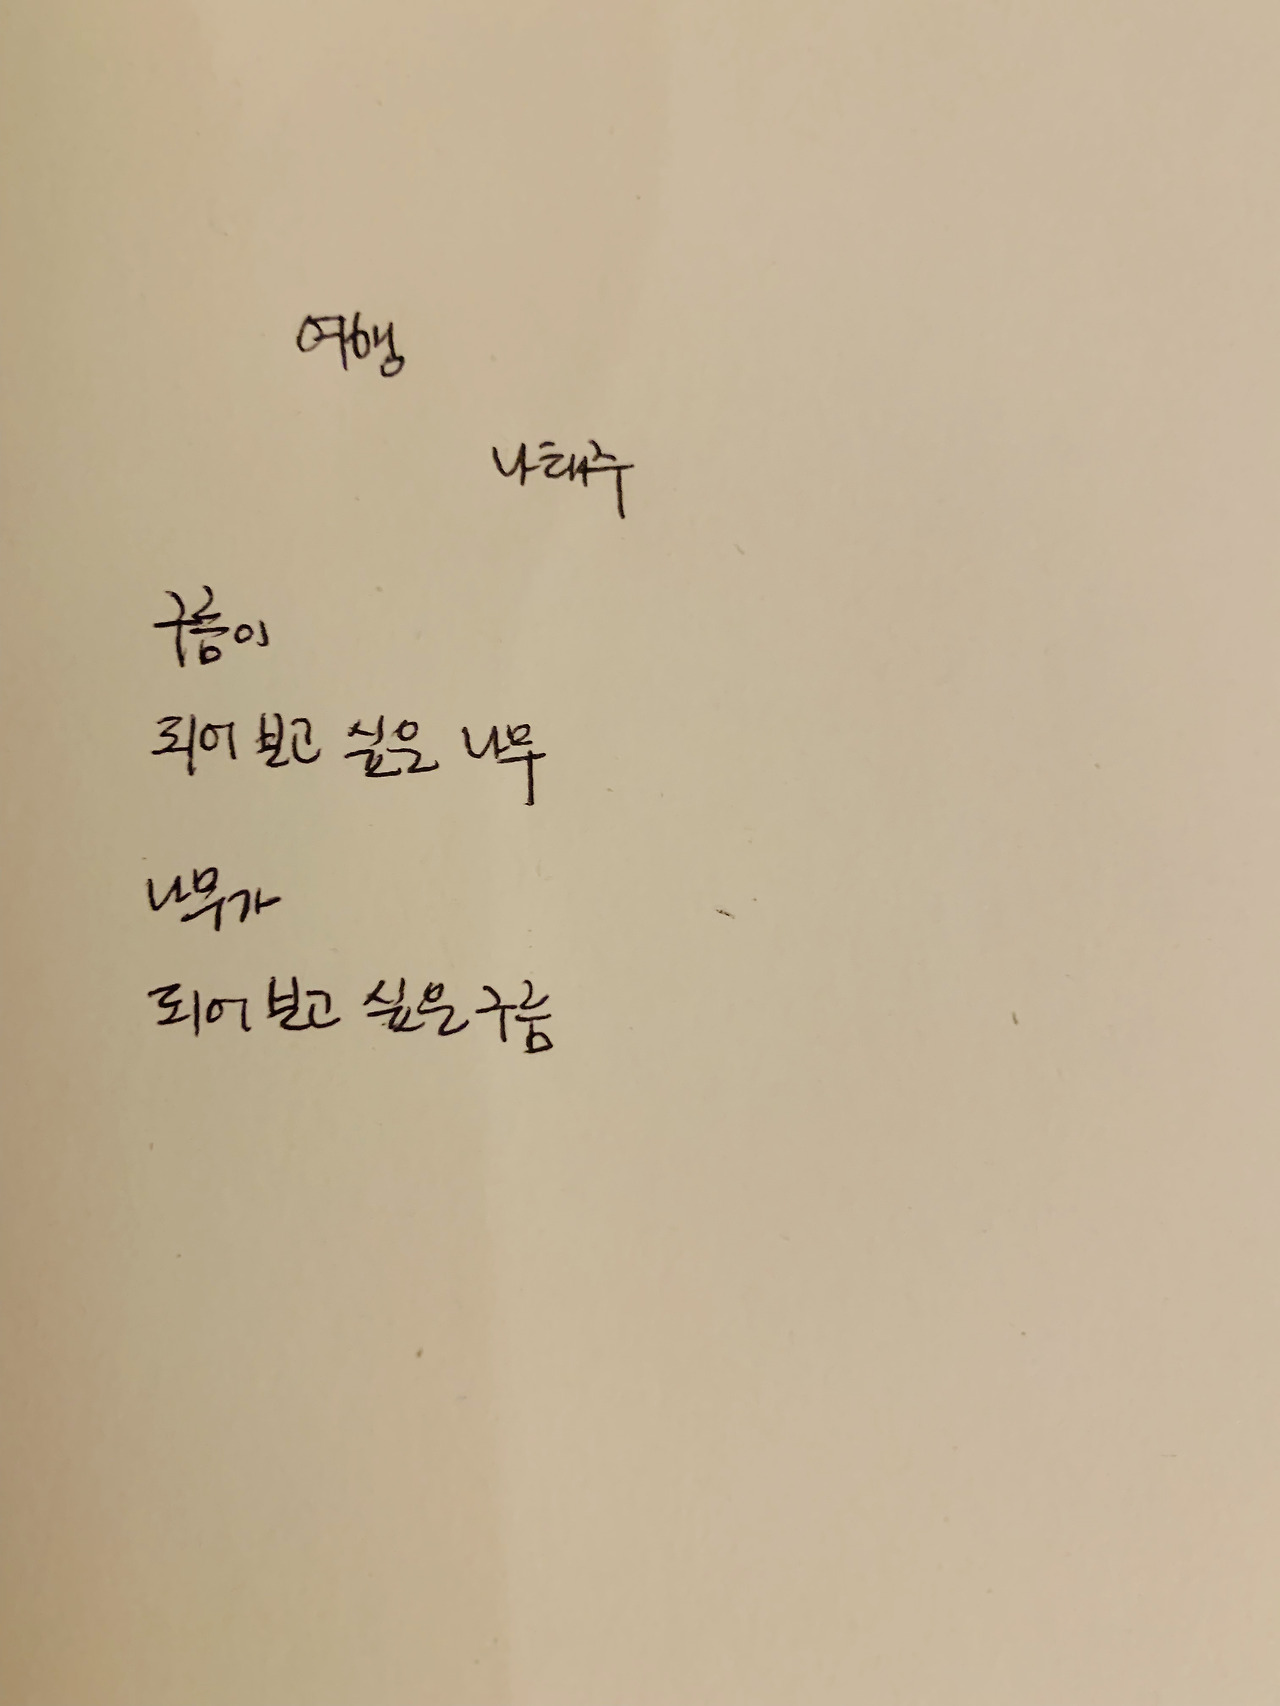 여행
나태주
구름이
되어 보고 싶은 나무
나무가
되어 보고 싶은 구름